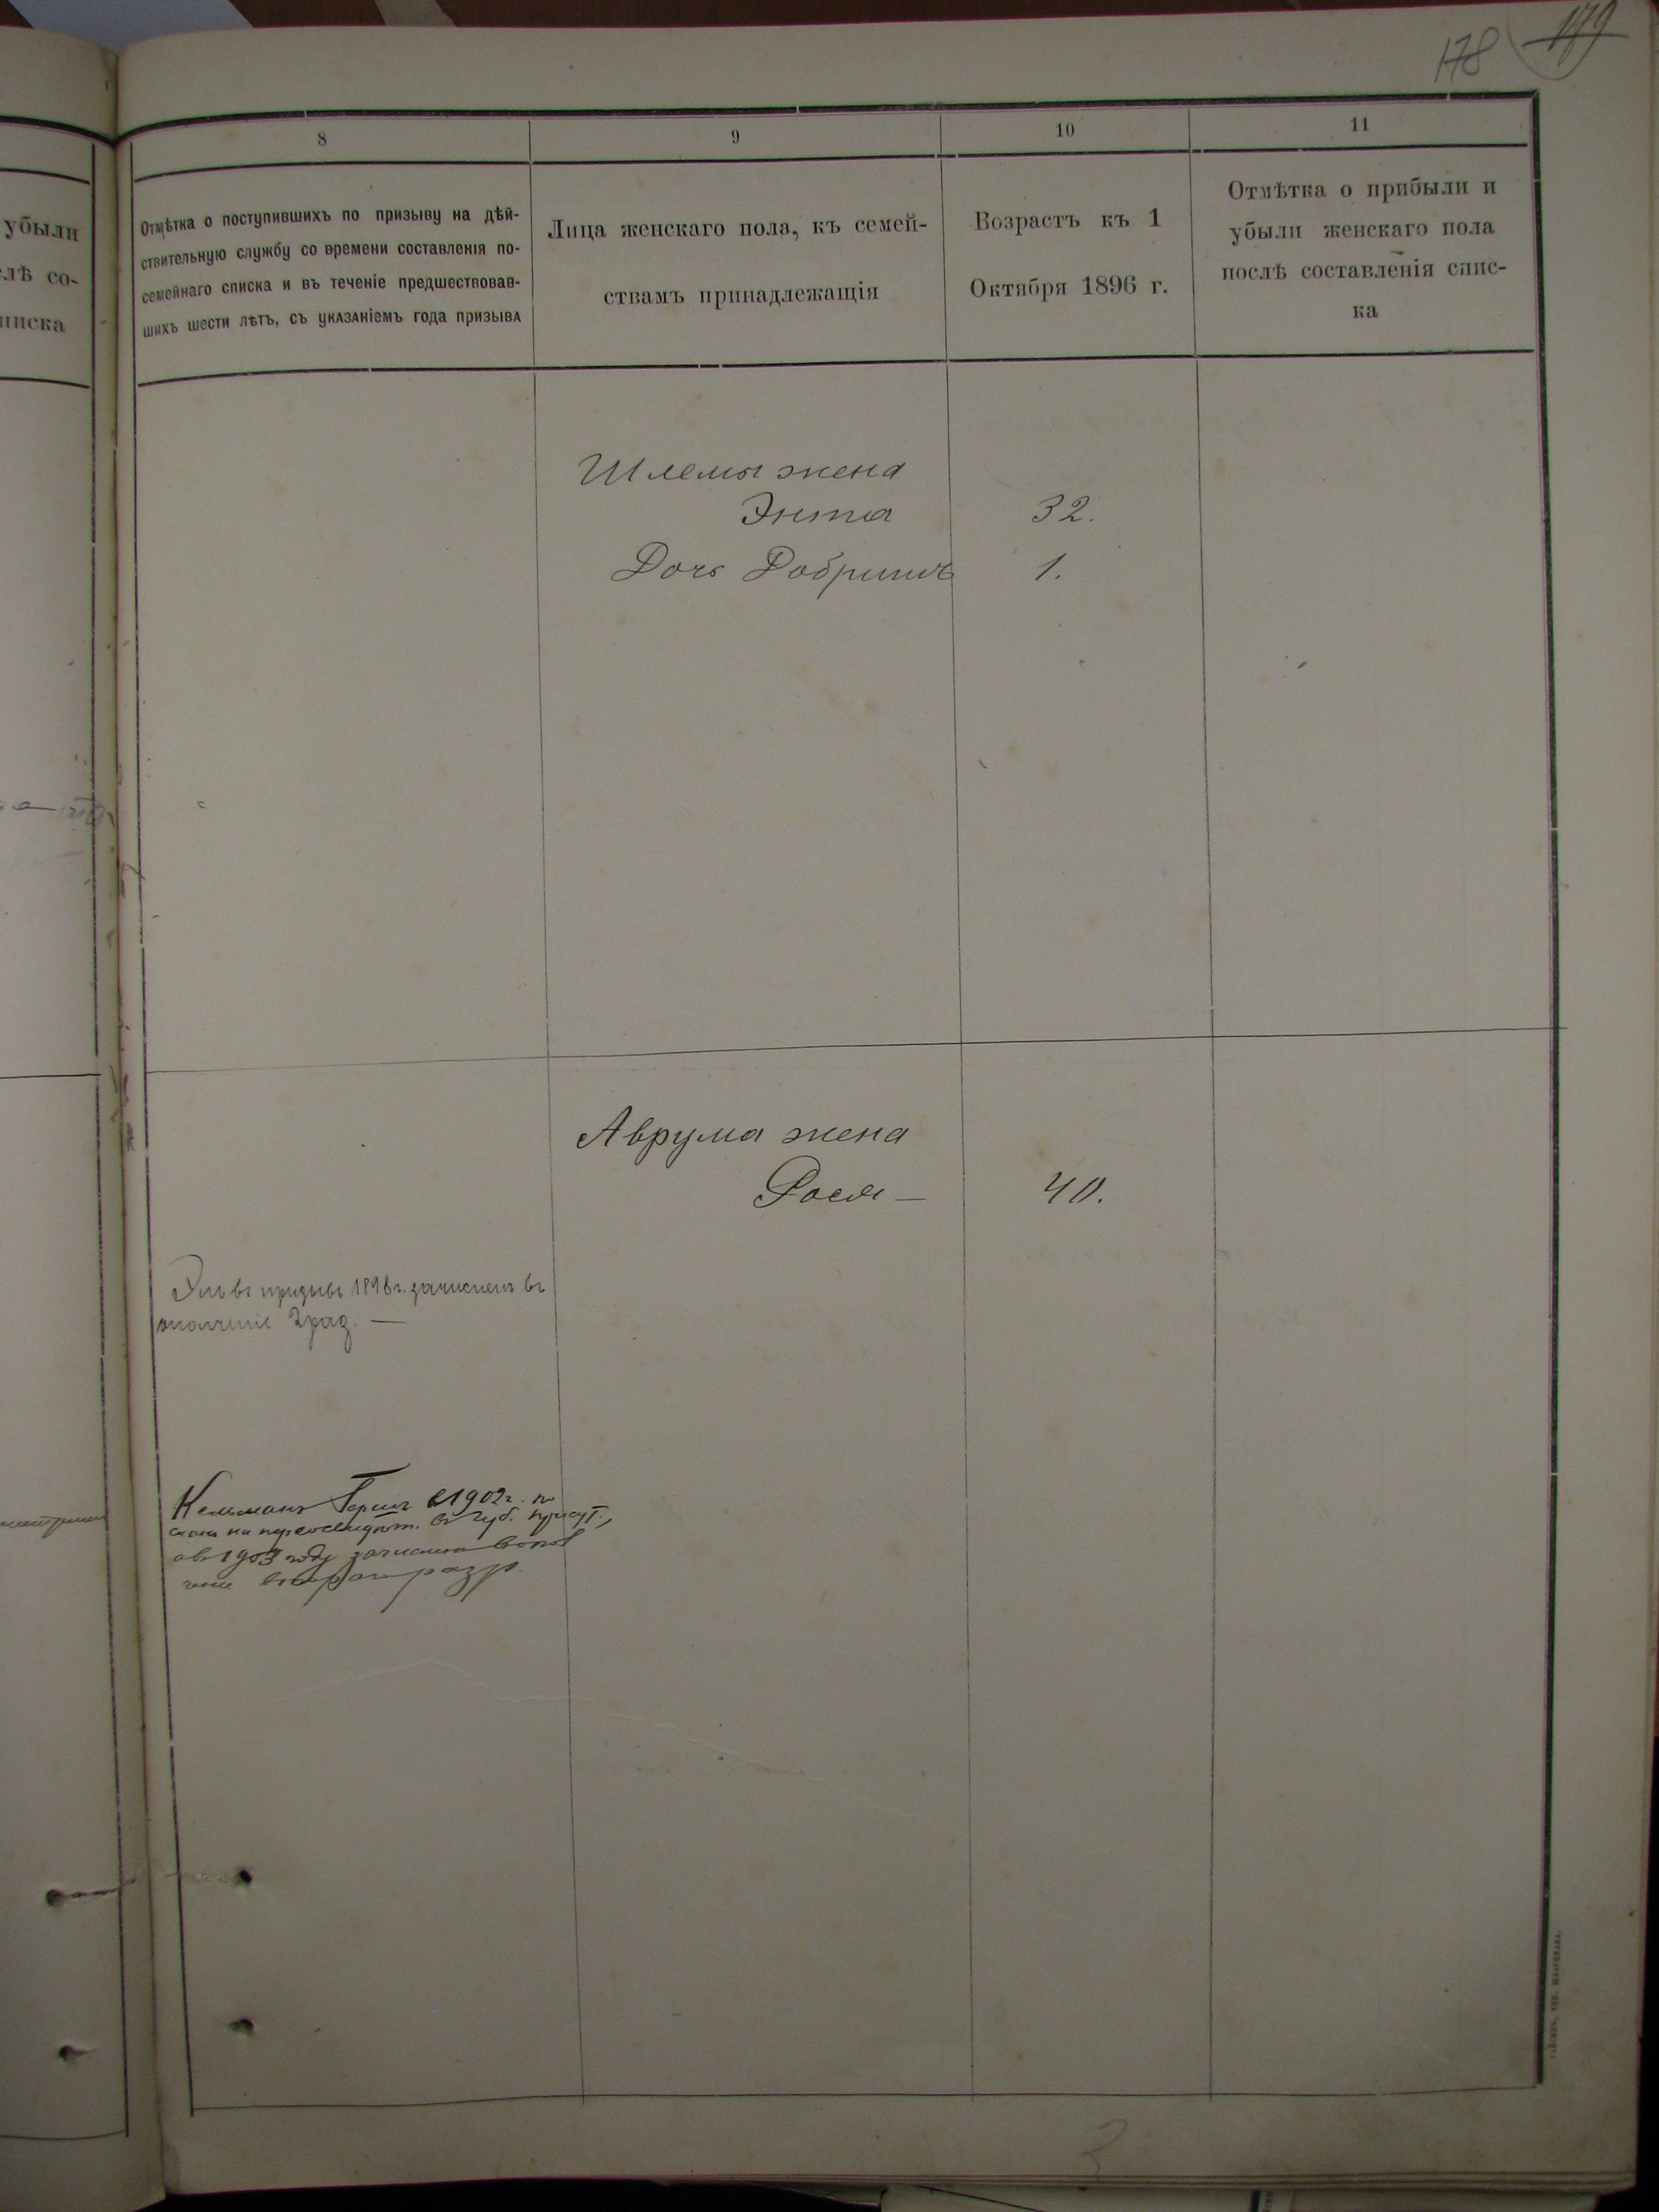 178 179
8
9
10
11
Отмѣтка о поступившихъ по призыву на дѣй-
ствительную службу со времени составленія по-
семейнаго списка и въ теченіе предшествовав-
шихъ шести лѣтъ, съ указаніемъ года призыва
Лица женскаго пола, къ семей-
ствамъ принадлежащія
Возрастъ къ 1
Октября 1896 г.
Отмѣтка о прибыли и
убыли женскаго пола
послѣ составленія спис-
ка
убыли
лѣ со-
писка
Шлемы жена
Энта 32.
Дочь Добришъ 1.
Аврума жена
Рося — 40.
въ призывъ 1898 г. зачисленъ въ
ополченіе 2 раз. —
Кельманъ Гершъ в 1902 г.
на въ Губ. Присут.,
а въ 1903 году зачисленъ в опол
чение второй разр.